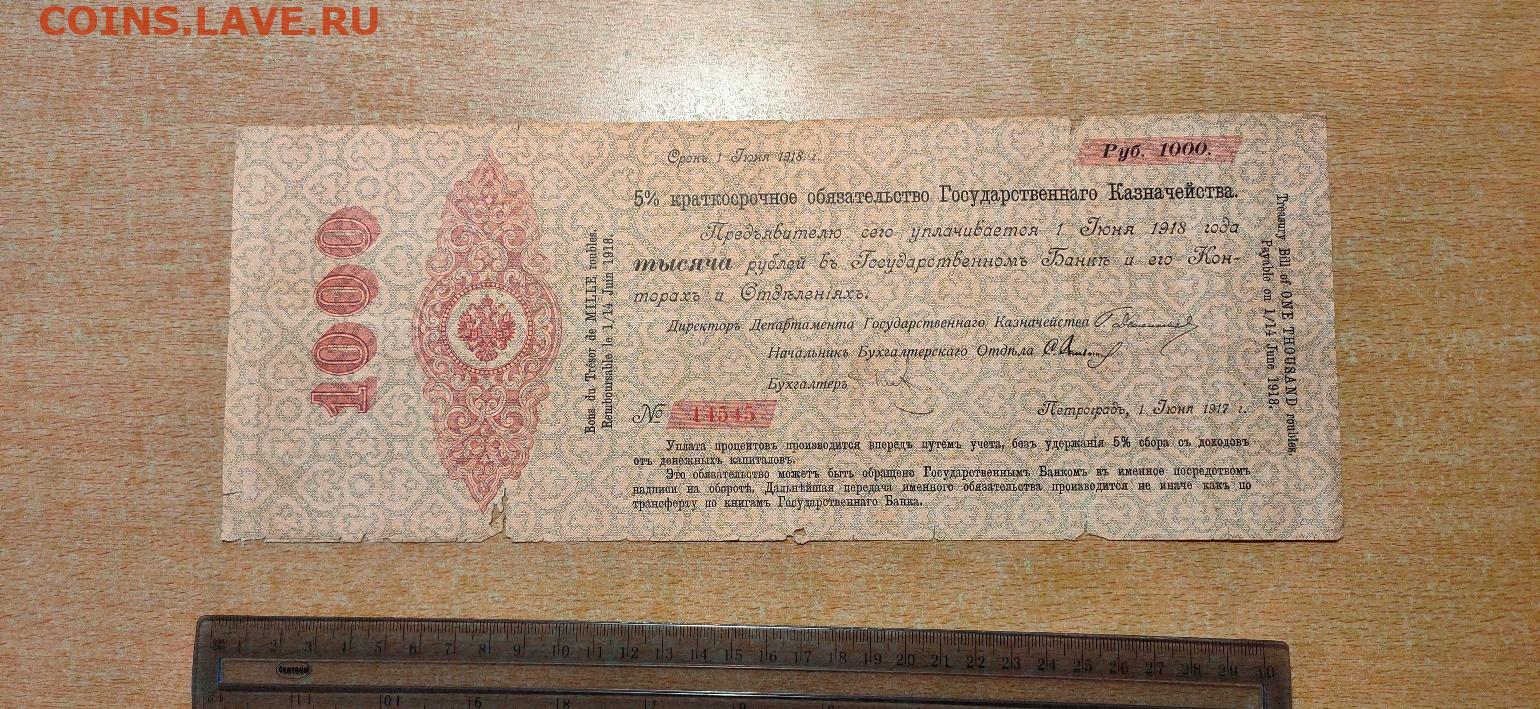 COINS.LAVE.RU
1000
Bons du Trésor de MILLE roubles.
Remboursable le 1/14 Juin 1918.
Срокъ 1 Іюня 1918 г.
Руб. 1000.
5% краткосрочное обязательство Государственнаго Казначейства.
Предъявителю сего уплачивается 1 Іюня 1918 года
тысяча рублей въ Государственномъ Банкѣ и его Кон-
торахъ и Отдѣленіяхъ.
Директоръ Департамента Государственнаго Казначейства
Начальникъ Бухгалтерскаго Отдѣла
Бухгалтеръ
№ 11545
Петроградъ, 1 Іюня 1917 г.
Уплата процентовъ производится впередъ путемъ учета, безъ удержанія 5% сбора съ доходовъ
отъ денежныхъ капиталовъ.
Это обязательство можетъ быть обращено Государственнымъ Банкомъ въ именное посредствомъ
надписи на оборотѣ. Дальнѣйшая передача именного обязательства производится не иначе какъ по
трансферту по книгамъ Государственнаго Банка.
Treasury Bill of ONE THOUSAND roubles.
Payable on 1/14 June 1918.
1 2 3 4 5 6 7 8 9 10 11 12 13 14 15 16 17 18 19 20 21 22 23 24 25 26 27 28 29 30
CENTRUM